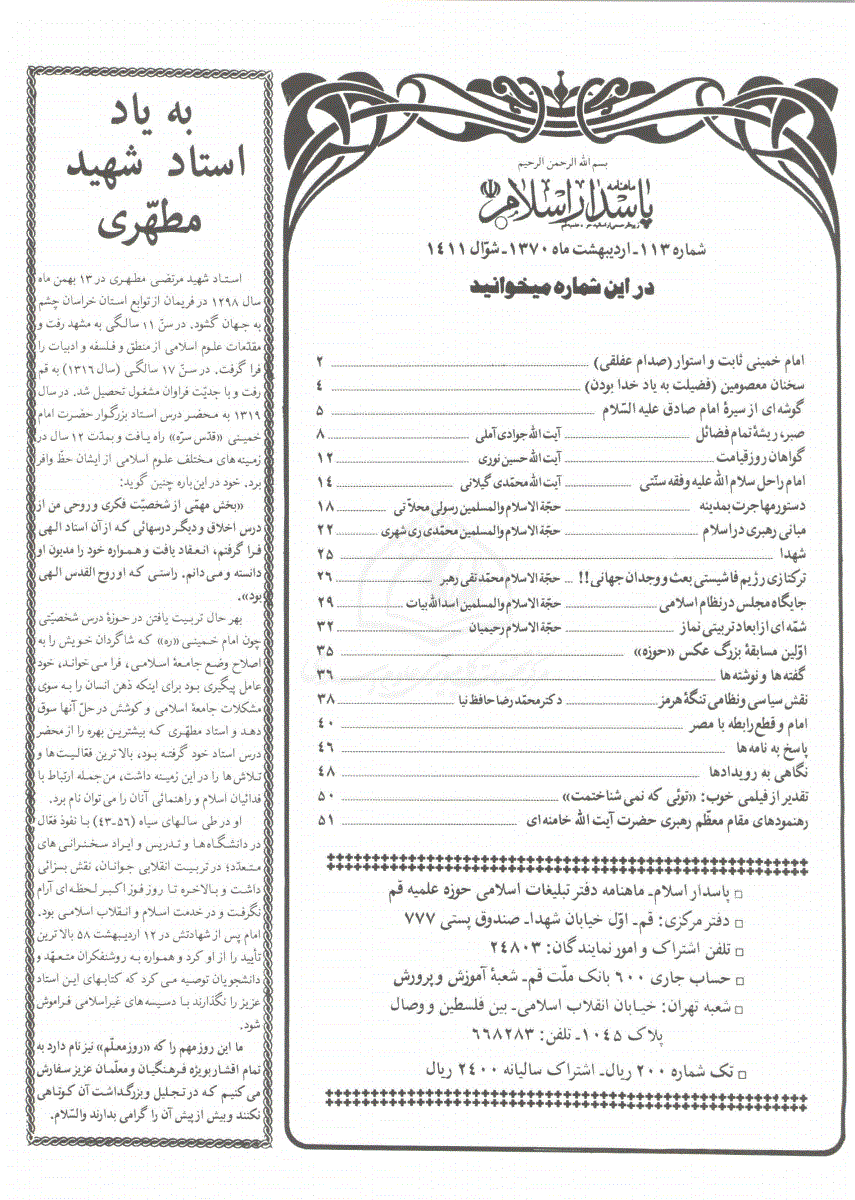 بسم الله الرحمن الرحیم
ماهنامه
پاسدار اسلام
شماره ۱۱۳ـ اردیبهشت ماه ۱۳۷۰ـ شوّال ۱۴۱۱
در این شماره میخوانید
امام خمینی ثابت و استوار (صدام عفلقی) ۲
سخنان معصومین (فضیلت به یاد خدا بودن) ۴
گوشه ای از سیرهٔ امام صادق علیه السّلام ۵
صبر، ریشهٔ تمام فضائل آیت الله جوادی آملی ۸
گواهان روز قیامت آیت الله حسین نوری ۱۲
امام راحل سلام الله علیه و فقه سنّتی آیت الله محمّدی گیلانی ۱۴
دستور مهاجرت بمدینه حجّة الاسلام والمسلمین رسولی محلاّتی ۱۸
مبانی رهبری در اسلام حجّة الاسلام والمسلمین محمّدی ری شهری ۲۲
شهدا ۲۵
ترکتازی رژیم فاشیستی بعث و وجدان جهانی!! حجّة الاسلام محمّد تقی رهبر ۲۶
جایگاه مجلس در نظام اسلامی حجّة الاسلام والمسلمین اسدالله بیات ۲۹
شمّه ای از ابعاد تربیتی نماز حجّة الاسلام رحیمیان ۳۲
اوّلین مسابقهٔ بزرگ عکس «حوزه» ۳۵
گفته ها و نوشته ها ۳۶
نقش سیاسی و نظامی تنگهٔ هرمز دکتر محمّد رضا حافظ نیا ۳۸
امام و قطع رابطه با مصر ۴۰
پاسخ به نامه ها ۴۶
نگاهی به رویدادها ۴۸
تقدیر از فیلمی خوب: «توئی که نمی شناختمت» ۵۰
رهنمودهای مقام معظّم رهبری حضرت آیت الله خامنه ای ۵۱
پاسدار اسلام ـ ماهنامه دفتر تبلیغات اسلامی حوزه علمیه قم
دفتر مرکزی: قم ـ اوّل خیابان شهدا ـ صندوق پستی ۷۷۷
تلفن اشتراک و امور نمایندگان: ۲۴۸۰۳
حساب جاری ۶۰۰ بانک ملّت قم ـ شعبهٔ آموزش و پرورش
شعبه تهران: خیابان انقلاب اسلامی ـ بین فلسطین و وصال
پلاک ۱۰۴۵ ـ تلفن: ۶۶۸۲۸۳
تک شماره ۲۰۰ ریال ـ اشتراک سالیانه ۲۴۰۰ ریال
به یاد
استاد شهید
مطهّری
استاد شهید مرتضی مطهری در ۱۳ بهمن ماه
سال ۱۲۹۸ در فریمان از توابع استان خراسان چشم
به جهان گشود. در سنّ ۱۱ سالگی به مشهد رفت و
مقدّمات علوم اسلامی از منطق و فلسفه و ادبیات را
فرا گرفت. در سنّ ۱۷ سالگی (سال ۱۳۱۶) به قم
رفت و با جدیّت فراوان مشغول تحصیل شد. در سال
۱۳۱۹ به محضر درس استاد بزرگوار حضرت امام
خمینی «قدّس سرّه» راه یافت و بمدّت ۱۲ سال در
زمینه های مختلف علوم اسلامی از ایشان حظّ وافر
برد. خود در این باره چنین گوید:
«بخش مهمّی از شخصیّت فکری و روحی من از
درس اخلاق و دیگر درسهائی که از آن استاد الهی
فرا گرفتم، انعقاد یافت و همواره خود را مدیون او
دانسته و می دانم. راستی که او روح القدس الهی
بود».
بهر حال تربیت یافتن در حوزهٔ درس شخصیّتی
چون امام خمینی «ره» که شاگردان خویش را به
اصلاح وضع جامعهٔ اسلامی، فرا می خواند، خود
عامل پیگیری بود برای اینکه ذهن انسان را به سوی
مشکلات جامعهٔ اسلامی و کوشش در حلّ آنها سوق
دهد و استاد مطهّری که بیشترین بهره را از محضر
درس استاد خود گرفته بود، بالاترین فعّالیت ها و
تلاش ها را در این زمینه داشت، من جمله ارتباط با
فدائیان اسلام و راهنمائی آنان را می توان نام برد.
او در طی سالهای سیاه (۵۶ـ۴۳) با نفوذ فعّال
در دانشگاه ها و تدریس و ایراد سخنرانی های
متعدّد؛ در تربیت انقلابی جوانان، نقش بسزائی
داشت و بالاخره تا روز فوز اکبر لحظه ای آرام
نگرفت و در خدمت اسلام و انقلاب اسلامی بود.
امام پس از شهادتش در ۱۲ اردیبهشت ۵۸ بالاترین
تأیید را از او کرد و همواره به روشنفکران متعهّد و
دانشجویان توصیه می کرد که کتابهای این استاد
عزیز را نگذارند با دسیسه های غیراسلامی فراموش
شود.
ما این روز مهم را که «روز معلّم» نیز نام دارد به
تمام اقشار بویژه فرهنگیان و معلّمان عزیز سفارش
می کنیم که در تجلیل و بزرگداشت آن کوتاهی
نکنند و بیش از پیش آن را گرامی بدارند والسّلام.